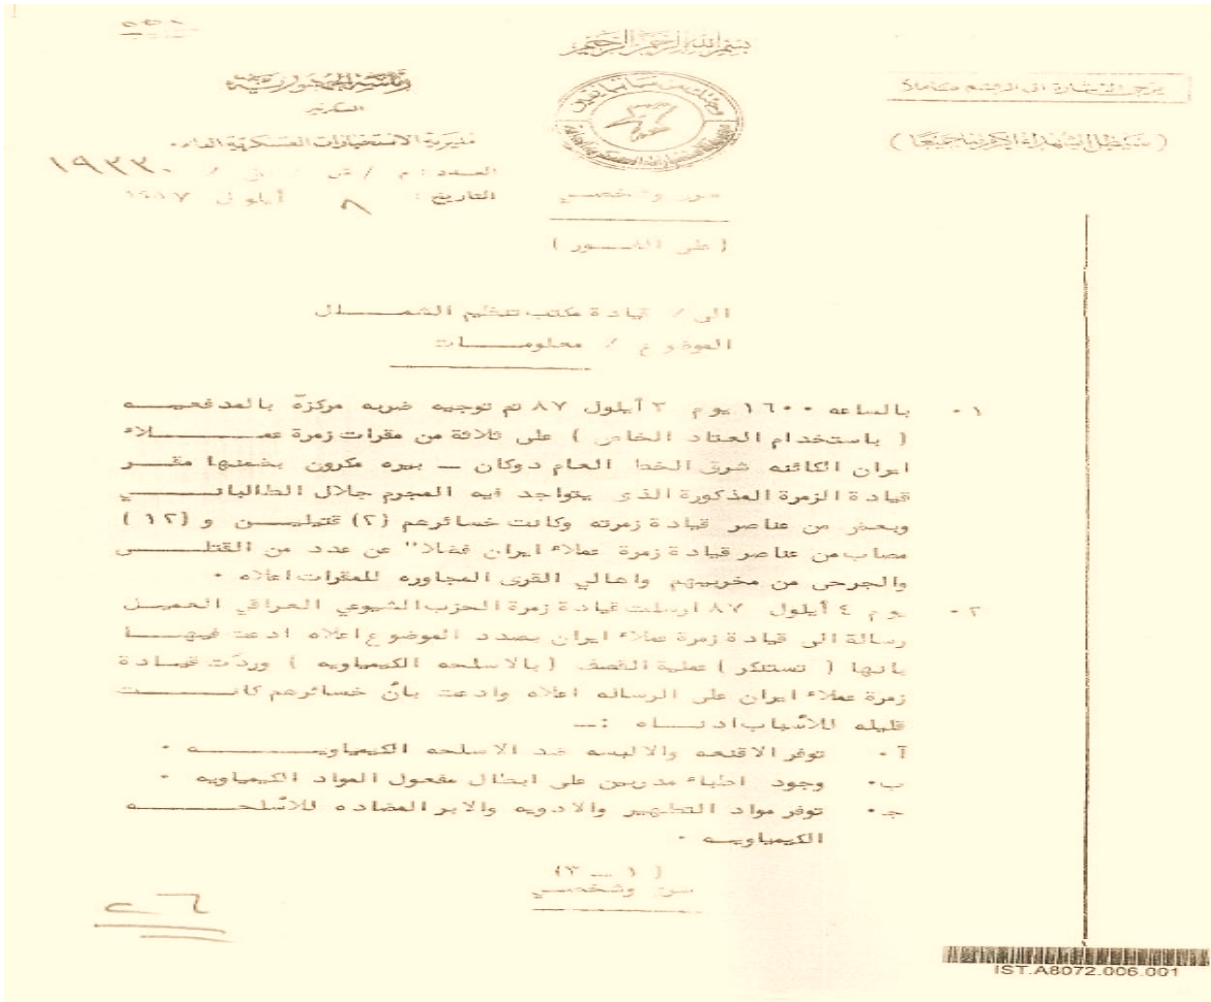 بسم الله الرحمن الرحيم
رئاسة الجمهورية
السكرتير
مديرية الاستخبارات العسكرية العامة
العدد : م / ش / /
١٩٣٣٠
التاريخ : ٨ أيلول ١٩٨٧
يرجى الاشارة الى الرقم كاملاً
سري وشخصي
( على الفـــور )
الى / قيادة مكتب تنظيم الشمـــال
الموضوع / معلومـــات
١٠ بالساعه ١٦٠٠ يوم ٣ أيلول ٨٧ تم توجيه ضربه مركزة بالمدفعيـــه
( باستخدام العتاد الخاص ) على ثلاثة من مقرات زمرة عمـــلاء
ايران الكائنه شرق الخط العام دوكان ــ بيره مكرون بضمنها مقـــر
قيادة الزمرة المذكورة الذي يتواجد فيه المجرم جلال الطالبانـــي
وبعض من عناصر قيادة زمرته وكانت خسائرهم (٢) قتيليـــن و (١٢)
مصاب من عناصر قيادة زمرة عملاء ايران فضلا" عن عدد من القتلـــى
والجرحى من مخربيهم واهالي القرى المجاوره للمقرات اعلاه ٠
٢٠ يوم ٤ أيلول ٨٧ ارسلت قيادة زمرة الحزب الشيوعي العراقي العميل
رسالة الى قيادة زمرة عملاء ايران بصدد الموضوع اعلاه ادعت فيهـــا
بانها ( تستنكر ) عملية القصف ( بالاسلحه الكيمياويه ) وردّت قيـادة
زمرة عملاء ايران على الرساله اعلاه وادعت بأن خسائرهم كانـــت
قليله للأسباب ادنـــاه :ــ
آ٠ توفر الاقنعه والالبسه ضد الاسلحه الكيمياويـــه ٠
ب٠ وجود اطباء مدربين على ابطال مفعول المواد الكيمياويه ٠
جـ٠ توفر مواد التطهير والادويه والابر المضاده للأسلحـــه
الكيمياويـــه ٠
( ١ ــ ٣)
سري وشخصي
IST.A8072.006.001